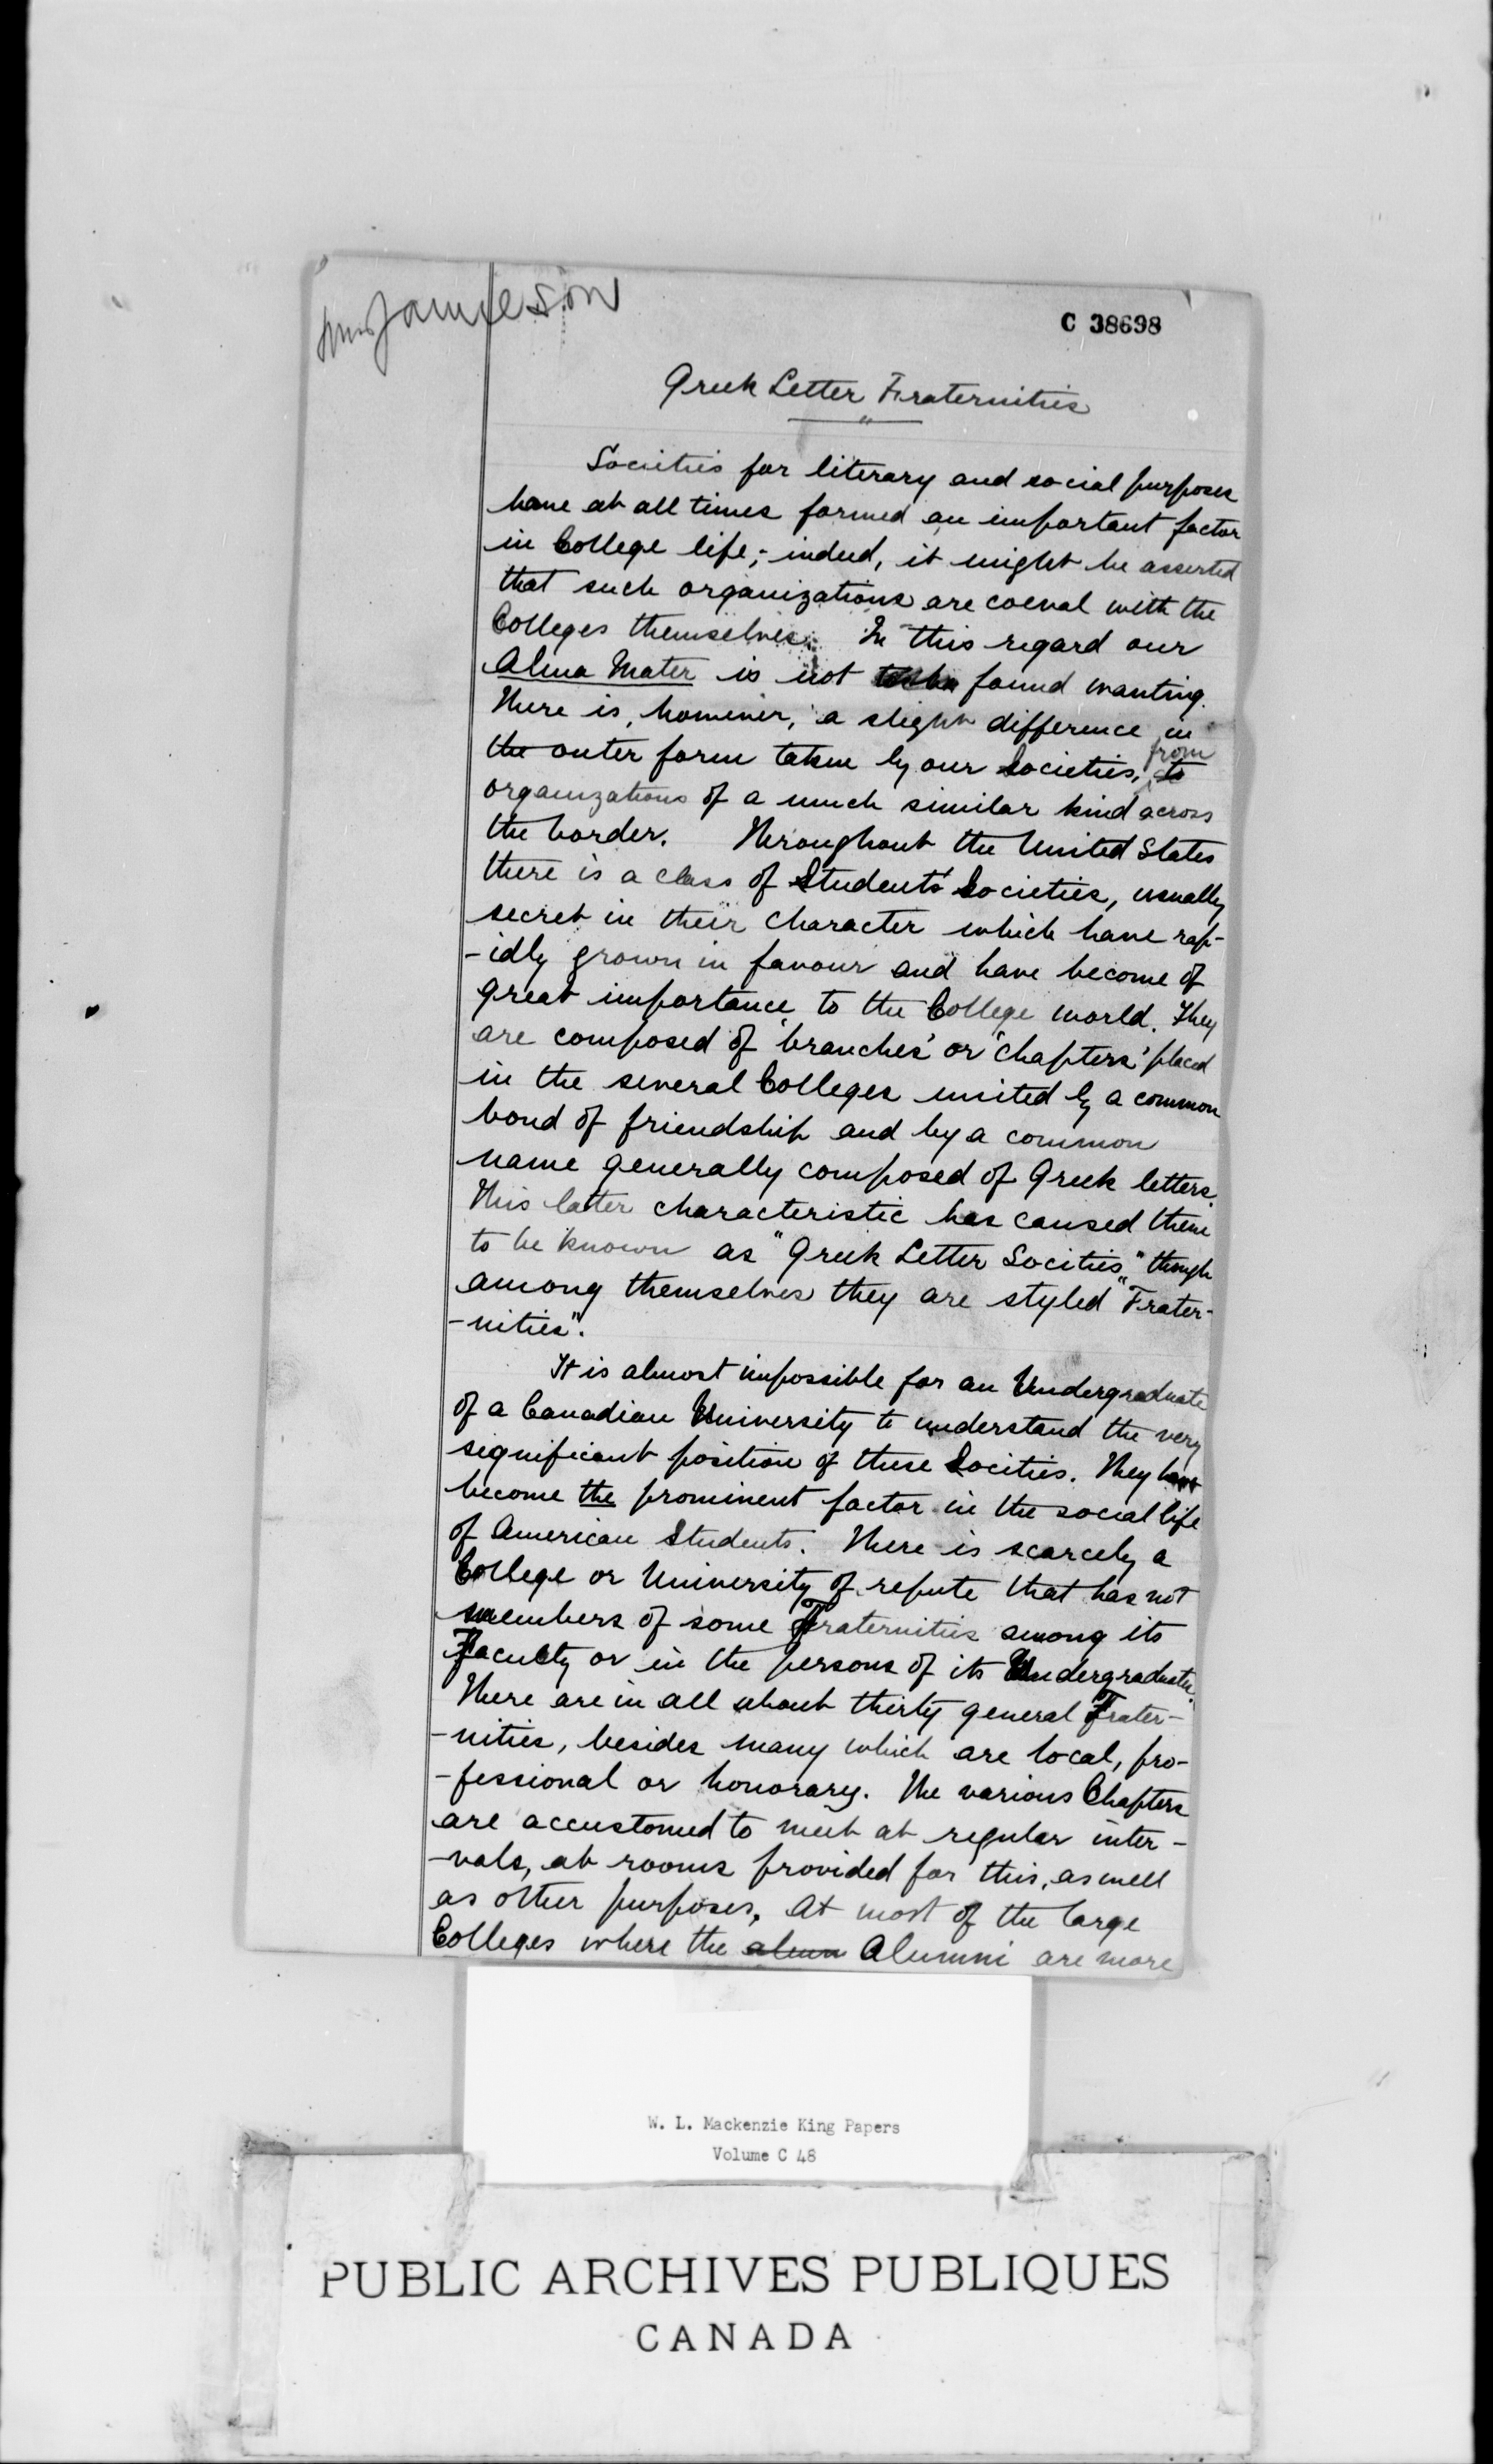 Jamieson
C 38698
Greek Letter Fraternities
Societies for literary and social purposes
have at all times formed an important factor
in College life;- indeed, it might be asserted
that such organizations are coeval with the
Colleges themselves. In this regard our
Alma Mater is not found wanting.
There is, however, a slight difference in
from
the outer form taken by our Societies, to
organizations of a much similar kind across
the border. Throughout the United States
there is a class of Students' Societies, usually
secret in their character which have rap-
-idly grown in favour and have become of
great importance to the College world. They
are composed of 'branches' or 'chapters' placed
in the several Colleges united by a common
bond of friendship and by a common
name generally composed of Greek letters.
This latter characteristic has caused them
to be known as "Greek Letter Socities" though
among themselves they are styled "Frater-
-nities".
It is almost impossible for an Undergraduate
of a Canadian University to understand the very
significant position of these Socities. They have
become the prominent factor in the social life
of American Students. There is scarcely a
College or University of repute that has not
members of some Fraternities among its
Faculty or in the persons of its Undergraduates.
There are in all about thirty general Frater-
-nities, besides many which are local, pro-
-fessional or honorary. The various Chapters
are accustomed to meet at regular inter-
-vals, at rooms provided for this, as well
as other purposes, At most of the large
Colleges where the alum Alumni are more
W. L. Mackenzie King Papers
Volume C 48
PUBLIC ARCHIVES PUBLIQUES
CANADA